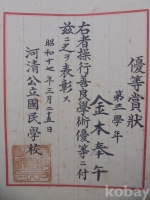 優等賞狀
第三學年
金本奉午
右者操行善良學術優等ニ付
玆ニ之ヲ表彰ス
昭和十七年三月二五日
河清公立國民學校
kobay